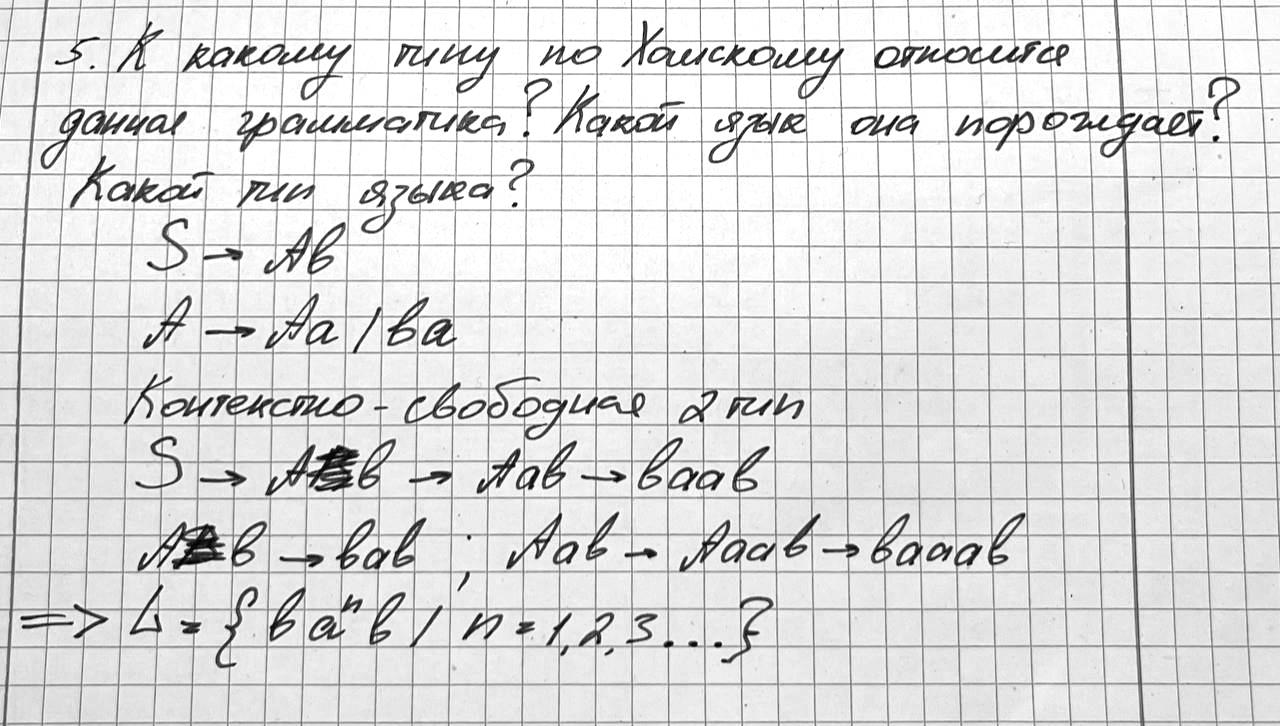 5. К какому типу по Хомскому относится
данная грамматика? Какой язык она порождает?
Какой тип языка?
S → Ab
A → Aa / ba
Контекстно-свободная 2 тип
S → Ab → Aab → baab
Ab → bab ; Aab → Aaab → baaab
=> L = { b aⁿ b / n = 1, 2, 3 ... }